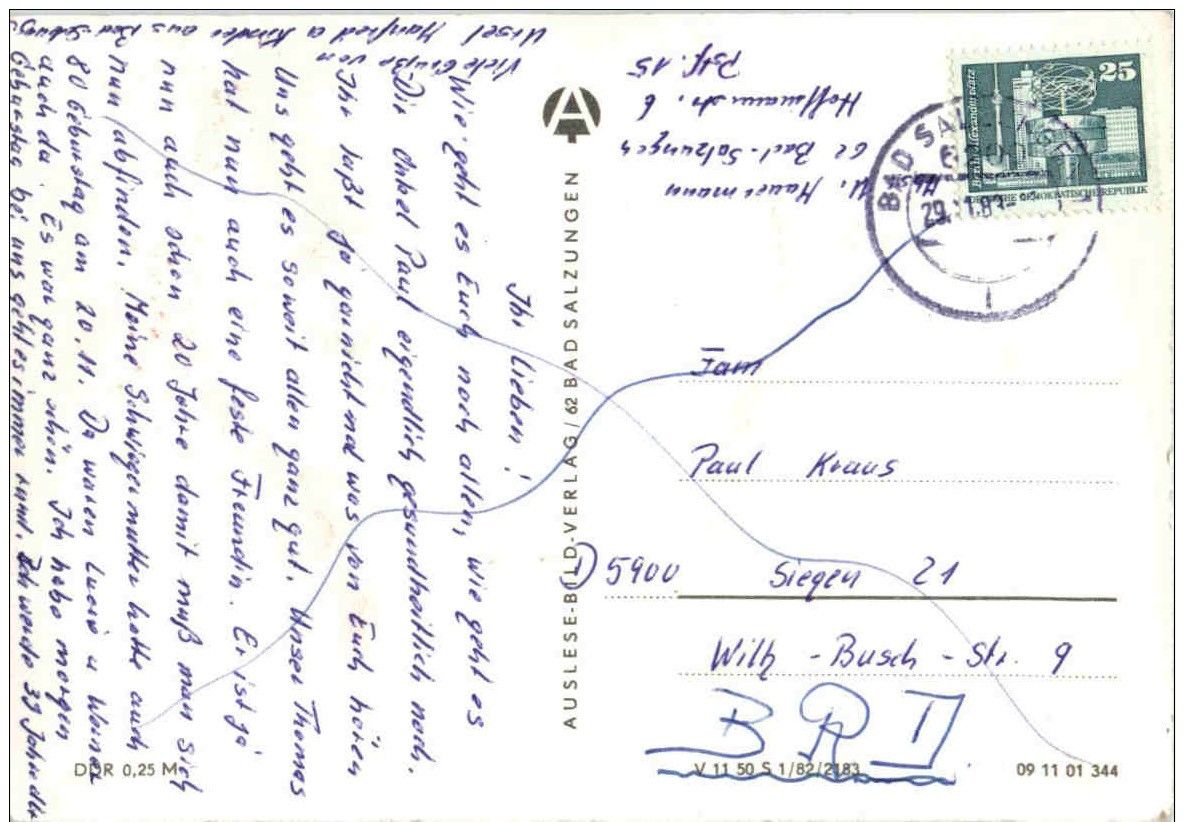 Ihr Lieben!
Wie geht es Euch noch allen, wie geht es
Dir Onkel Paul eigendlich gesundheitlich noch.
Ihr laßt ja gar nicht mal was von Euch hören
Uns geht es soweit allen ganz gut. Unser Thomas
hat nun auch eine feste Freundin. Er ist ja
nun auch schon 20 Jahre damit muß man sich
nun abfinden. Meine Schwiegermutter hatte auch
80 Geburstag am 20.11. Da waren u Werner
auch da. Es war ganz schön. Ich habe morgen
Geburstag bei uns geht es immer rund. Ich werde 39 Jahre
Viele Grüße von
Ursel Manfred u Kinder aus Bad-Salzung.
AUSLESE-BILD-VERLAG/62 BAD SALZUNGEN
U. Hauermann
62 Bad-Salzungen
Hoffmannstr. 6
Pstf. 15
25
DEUTSCHE DEMOKRATISCHE REPUBLIK
BAD SALZUNGEN
29.11.83
Fam
Paul Kraus
D 5900 Siegen 21
Wilh - Busch - Str. 9
BRD
DDR 0,25 M
V 11 50 S 1/82/2183
09 11 01 344